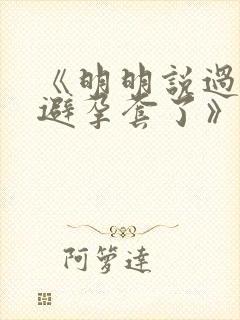 《明明說過
避孕套了》
阿箩達